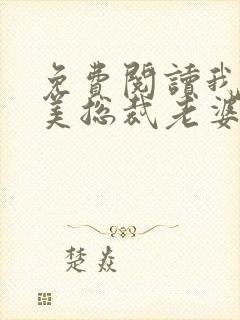 免費閱讀我
美總裁老婆
楚焱